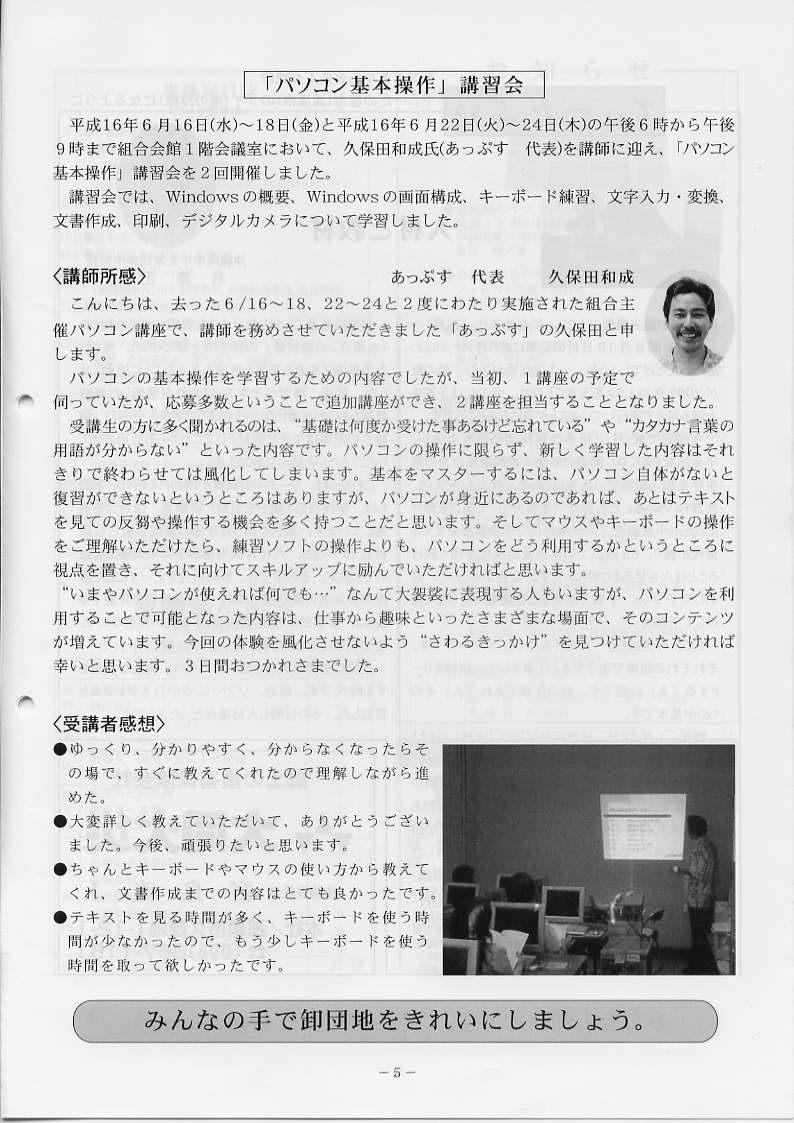 「パソコン基本操作」講習会
平成16年6月16日(水)～18日(金)と平成16年6月22日(火)～24日(木)の午後6時から午後
9時まで組合会館1階会議室において、久保田和成氏(あっぷす　代表)を講師に迎え、「パソコン
基本操作」講習会を2回開催しました。
講習会では、Windowsの概要、Windowsの画面構成、キーボード練習、文字入力・変換、
文書作成、印刷、デジタルカメラについて学習しました。
〈講師所感〉　あっぷす　代表　久保田和成
こんにちは、去った6/16～18、22～24と2度にわたり実施された組合主
催パソコン講座で、講師を務めさせていただきました「あっぷす」の久保田と申
します。
パソコンの基本操作を学習するための内容でしたが、当初、1講座の予定で
伺っていたが、応募多数ということで追加講座ができ、2講座を担当することとなりました。
受講生の方に多く聞かれるのは、“基礎は何度か受けた事あるけど忘れている”や“カタカナ言葉の
用語が分からない”といった内容です。パソコンの操作に限らず、新しく学習した内容はそれ
きりで終わらせては風化してしまいます。基本をマスターするには、パソコン自体がないと
復習ができないというところはありますが、パソコンが身近にあるのであれば、あとはテキスト
を見ての反芻や操作する機会を多く持つことだと思います。そしてマウスやキーボードの操作
をご理解いただけたら、練習ソフトの操作よりも、パソコンをどう利用するかというところに
視点を置き、それに向けてスキルアップに励んでいただければと思います。
“いまやパソコンが使えれば何でも…”なんて大袈裟に表現する人もいますが、パソコンを利
用することで可能となった内容は、仕事から趣味といったさまざまな場面で、そのコンテンツ
が増えています。今回の体験を風化させないよう“さわるきっかけ”を見つけていただければ
幸いと思います。3日間おつかれさまでした。
〈受講者感想〉
●ゆっくり、分かりやすく、分からなくなったらそ
の場で、すぐに教えてくれたので理解しながら進
めた。
●大変詳しく教えていただいて、ありがとうござい
ました。今後、頑張りたいと思います。
●ちゃんとキーボードやマウスの使い方から教えて
くれ、文書作成までの内容はとても良かったです。
●テキストを見る時間が多く、キーボードを使う時
間が少なかったので、もう少しキーボードを使う
時間を取って欲しかったです。
みんなの手で卸団地をきれいにしましょう。
－5－